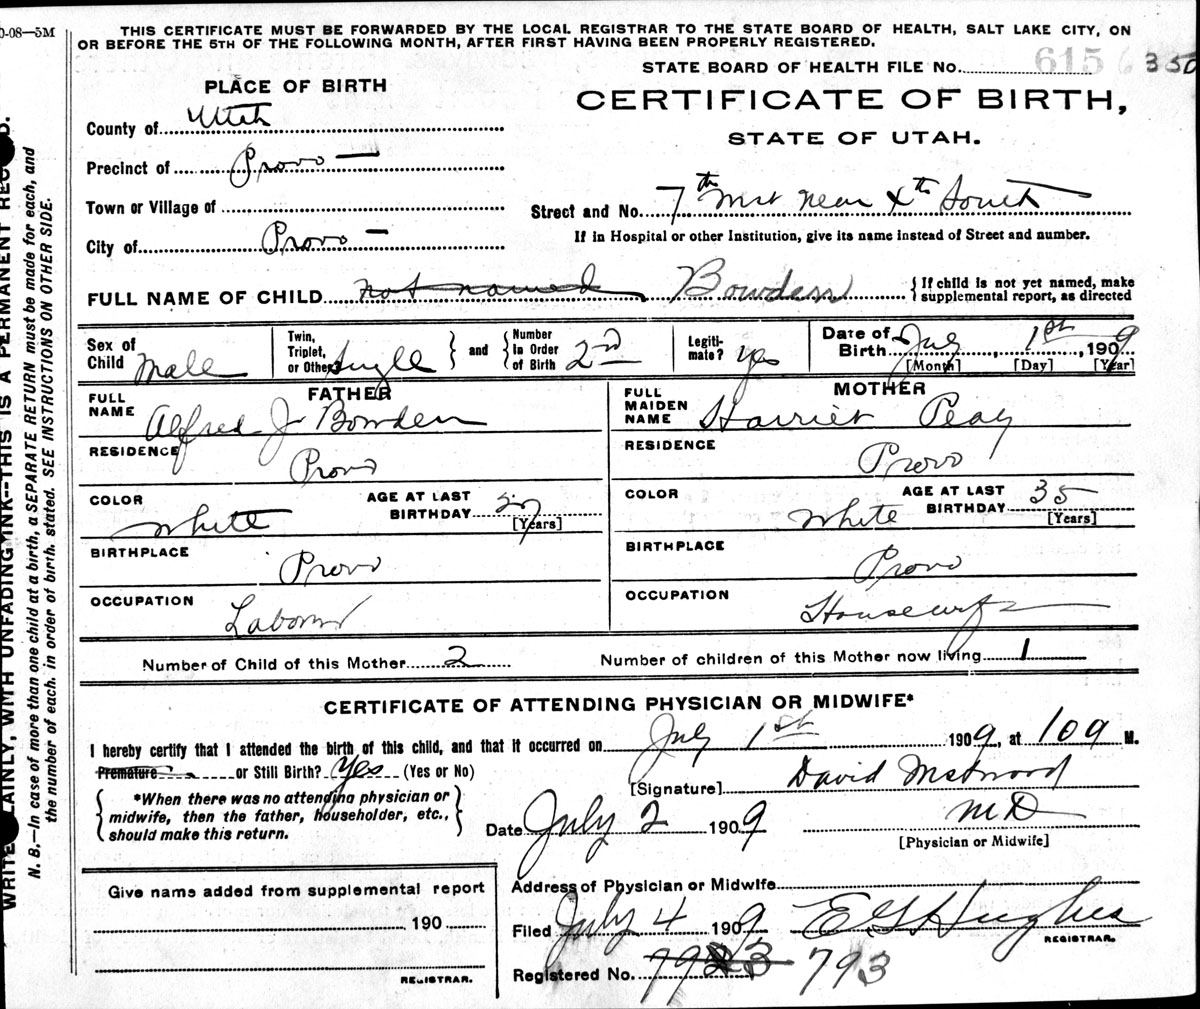 0-08—5M
THIS CERTIFICATE MUST BE FORWARDED BY THE LOCAL REGISTRAR TO THE STATE BOARD OF HEALTH, SALT LAKE CITY, ON
OR BEFORE THE 5TH OF THE FOLLOWING MONTH, AFTER FIRST HAVING BEEN PROPERLY REGISTERED.
STATE BOARD OF HEALTH FILE No. 615 6 350
PLACE OF BIRTH
CERTIFICATE OF BIRTH,
STATE OF UTAH.
County of Utah
Precinct of Provo —
Town or Village of
City of Provo —
Street and No. 7th West near 4th South
If in Hospital or other Institution, give its name instead of Street and number.
FULL NAME OF CHILD not named Bowden { If child is not yet named, make
supplemental report, as directed
Sex of Child Male
Twin, Triplet, or Other Single } and { Number In Order of Birth 2nd
Legiti-mate? yes
Date of Birth July, 1st, 1909
[Month] [Day] [Year]
FATHER
FULL NAME Alfred J Bowden
RESIDENCE Provo
COLOR White
AGE AT LAST BIRTHDAY
[Years]
BIRTHPLACE Provo
OCCUPATION Laborer
MOTHER
FULL MAIDEN NAME Harriet Peay
RESIDENCE Provo
COLOR White
AGE AT LAST BIRTHDAY 35
[Years]
BIRTHPLACE Provo
OCCUPATION Housewife
Number of Child of this Mother 2
Number of children of this Mother now living 1
CERTIFICATE OF ATTENDING PHYSICIAN OR MIDWIFE*
I hereby certify that I attended the birth of this child, and that it occurred on July 1st 1909, at 109 M.
Premature or Still Birth? Yes (Yes or No)
{ *When there was no attending physician or
midwife, then the father, householder, etc.,
should make this return. }
[Signature] David
Date July 2 1909
M D
[Physician or Midwife]
Give name added from supplemental report
190
REGISTRAR.
Address of Physician or Midwife
Filed July 4 1909 E G Hughes
REGISTRAR.
Registered No. 793
WRITE PLAINLY, WITH UNFADING INK--THIS IS A PERMANENT RECORD.
N. B.—In case of more than one child at a birth, a SEPARATE RETURN must be made for each, and
the number of each. in order of birth. stated. SEE INSTRUCTIONS ON OTHER SIDE.